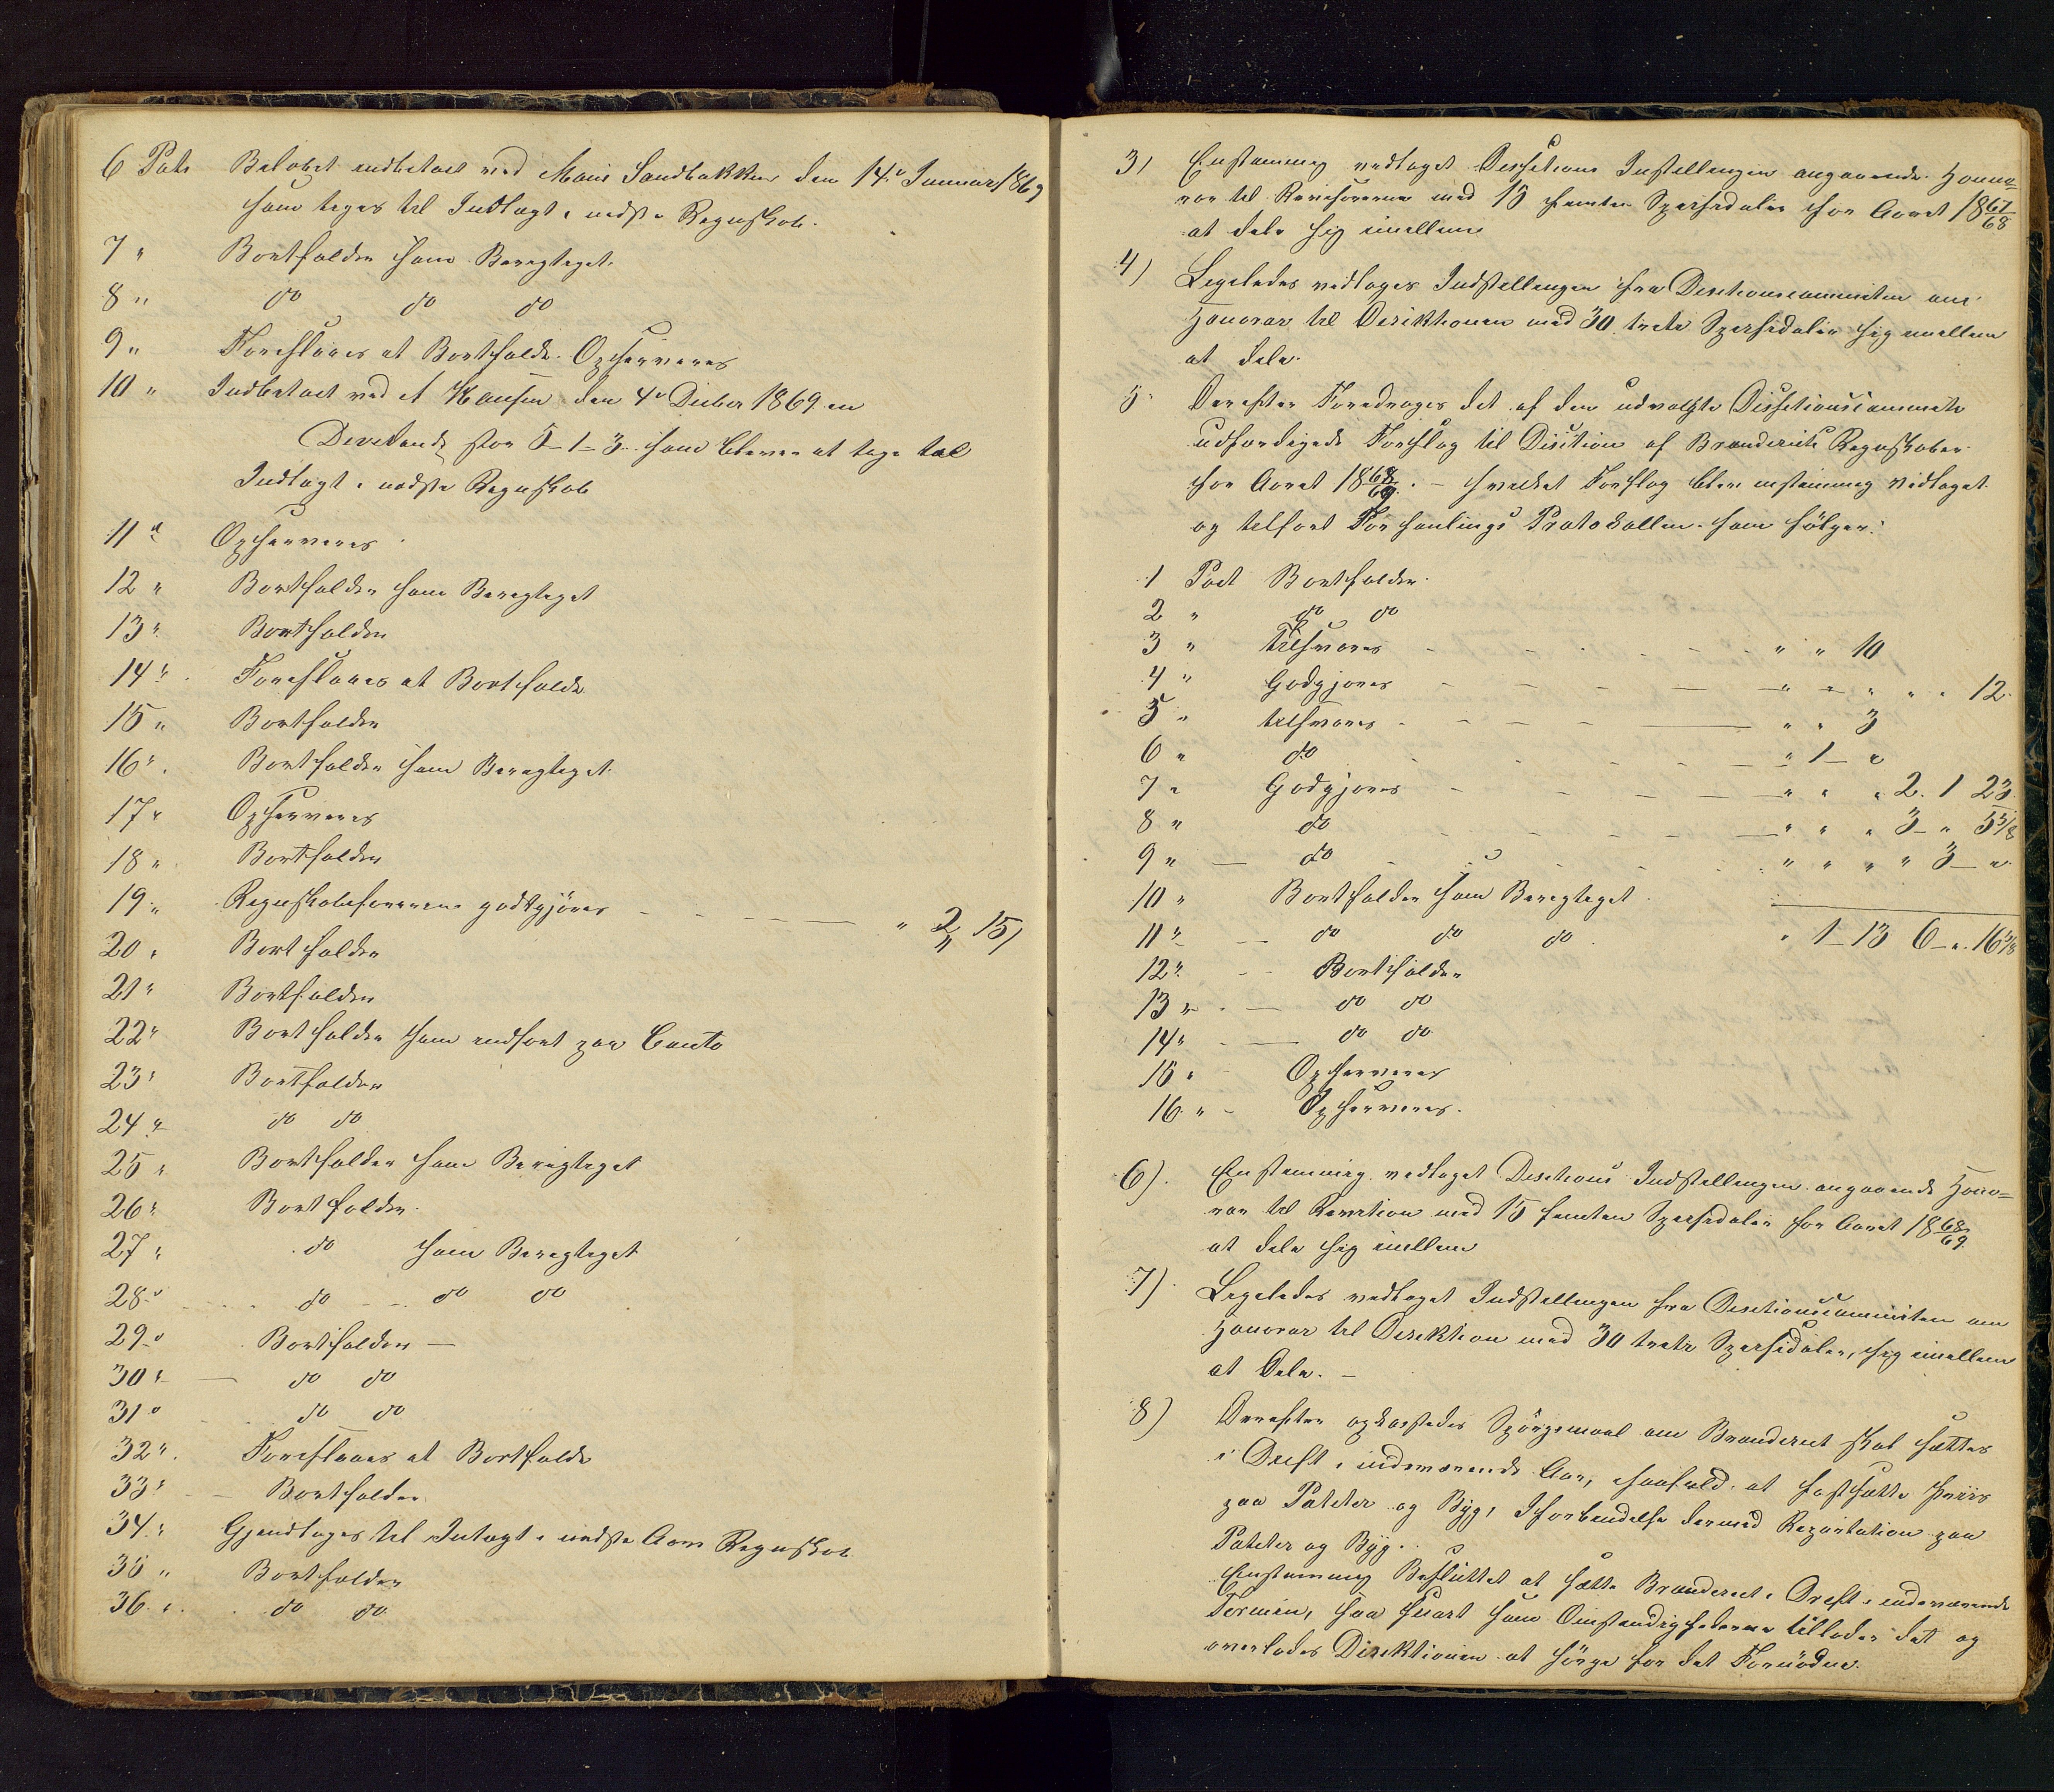 6 Post Beløbet indbetalt ved Maris Sandbakken den 14de Januar 1869
som tages til Indtægt i næste Regnskab.
7 " Bortfalder som Berigtiget.
8 " do do do
9 " Foreslaaes at Bortfalde. Opserveres
10 " Indbetalt ved A Hansen den 4de Decber 1869 en
Devidende stor 5-1-3 som bliver at tage til
Indtægt i næste Regnskab
11 " Opserveres
12 " Bortfalder som Berigtiget
13 " Bortfalder
14 " Foreslaaes at Bortfalde
15 " Bortfalder
16 " Bortfalder som Berigtiget
17 " Opserveres
18 " Bortfalder
19 " Regnskabsførerene godtgjøres " 2 15
20 " Bortfalder
21 " Bortfalder
22 " Bortfalder som indført paa Conto
23 " Bortfalder
24 " do do
25 " Bortfalder som Berigtiget
26 " Bortfalder
27 " do som Berigtiget
28 " do do do
29 " Bortfalder
30 " do do
31 " do do
32 " Foreslaaes at Bortfalde
33 " Bortfalder
34 " Gjendtages til Intægt i næste Aars Regnskab
35 " Bortfalder
36 " do do
3) Enstemmig vedtaget Desitions Instellingen angaaende Honno=
rar til Revisorerne med 15 femten Spesidaler for Aaret 1867/68
at dele sig imellem
4) Ligeledes vedtoges Indstellingen fra Desitionscommiten om
Honorar til Direktionen med 30 treti Spesidaler sig imellem
at dele.
5 Derefter Foredroges det af den udvalgte Disitionscommite
udfærdigede Forslag til Disition af Brænderiets Regnskaber
for Aaret 1868/69. - hvilket Forslag blev enstemmig vedtaget
og tilført Forhanlings Protokollen som følger:
1 Post Bortfalder
2 " do do
3 " tilsvares " " 10
4 " Godgjøres " " " " " 12
5 " tilsvares " " 3
6 " do " 1 "
7 " Godgjøres " " " 2. 1 23
8 " do " " " 3 " 5 5/8
9 " do " " " " 3 "
10 " Bortfalder som Berigtiget
11 " do do do " 1 - 13 6 - ". 16 5/8
12 " Bortfalder
13 " do do
14 " do do
15 " Opserveres
16 " Opserveres.
6). Enstemmig vedtaget Desitions Indstellingen angaaende Hono=
rar til Revition med 15 femten Spesidaler for Aaret 1868/69
at dele sig imellem
7) Ligeledes vedtaget Indstellingen fra Desitionscommiten om
Honorar til Direktion med 30 treti Spesidaler, sig imellem
at Dele. -
8) Derefter opkastedes Spørgsmaal om Brænderiet skal sættes
i Drift i indeværende Aar, isaafald at fastsætte Priis
paa Poteter og Byg, Iforbindelse dermed Repartation paa
Poteter og Byg.
Enstemmig Besluttet at sætte Brænderiet i Drift i indeværende
Termin, saa snart som Omstændighederne tillader det og
overlodes Direktionen at sørge for det Fornødne.